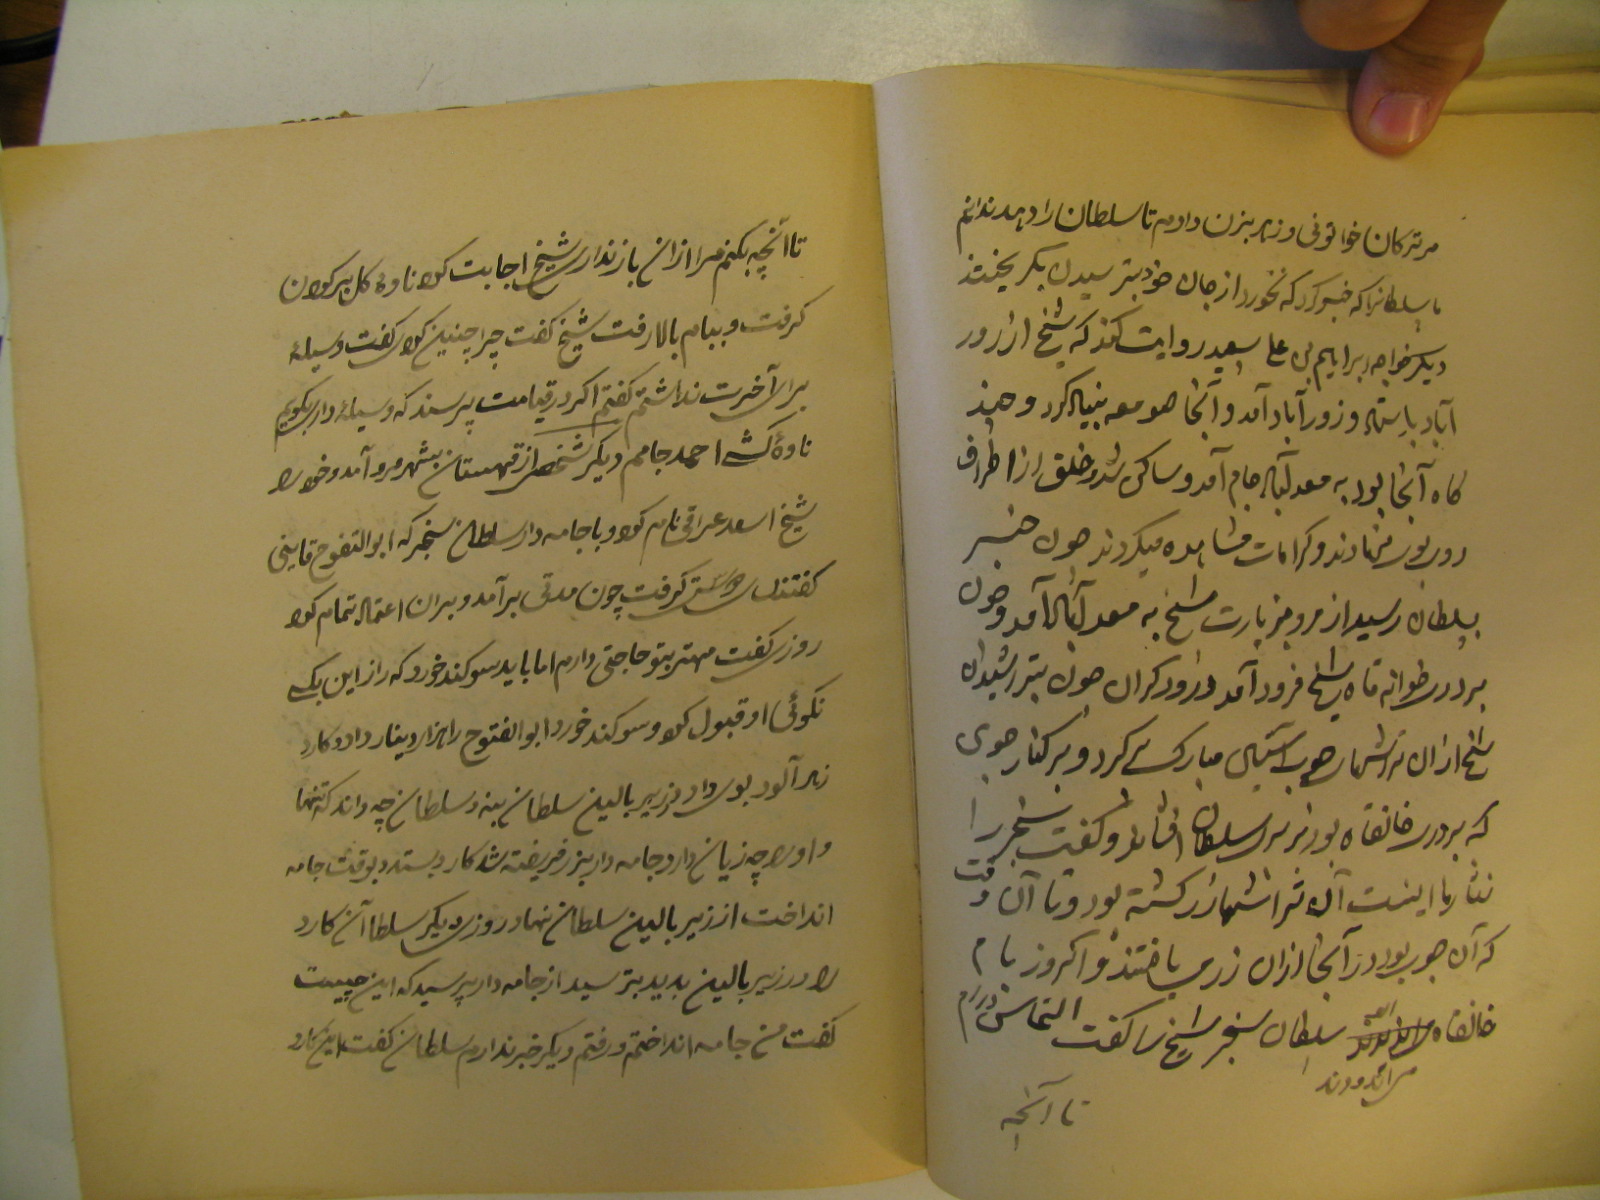 مر ترکان خاتونی و زیر بزن دادم تا سلطان را دهد ندانم
با سلطانرا که خبر کرد که نخورد از جان خود بترسیدن بگریختند
دیگر خواجه ابراهیم بن علی سعید روایت کند که شیخ از زور
آباد باستاد و زورآباد آمد و آنجا صومعه بنیاد کرد و چند
گاه آنجا بود به معدآباد جام آمد و ساکن شد و خلق از اطراف
روی بوی نهادند و کرامات مشاهده میکردند چون خبر
بسلطان رسید از مرو بزیارت شیخ به معدآباد آمد و چون
بر در خانقاه شیخ فرود آمد درودگران چون بتراشیدن
شیخ از آن تراشهای چوب آستین مبارک پر کرد و بر کنار جوی
که بر در خانقاه بود بر سر سلطان افشاند و گفت سنجر را
نثار ما اینست آن تراشها زر گشته بود و تا آن وقت
که آن جوب بود در آنجا از آن زر می یافتند و اگر روز بام
خانقاه می اندودند سلطان سنجر شیخ را گفت التماس دارم
تا آنچه
تا آنچه بکنم مرا از آن باز نداری شیخ اجابت کرد ناوۀ گل بر گردن
گرفت و ببام بالا رفت شیخ گفت چرا چنین کردی گفت وسیلۀ
برای آخرت نداشتم گفتم اگر در قیامت پرسند که وسیلۀ داری بگویم
ناوۀ کش احمد جامم دیگر شخصی از قهستان بشهر مرو آمد و خود را
شیخ اسعد عراقی نام کرد و با جامه دار سلطان سنجر که ابوالفتوح قاینی
گفتندی دوستی گرفت چون مدتی برآمد و بر آن اعتماد تمام کرد
روزی گفت مهتر بتو حاجتی دارم اما باید سوگند خورد که راز این بکسی
نگوئی او قبول کرد و سوگند خورد ابوالفتوح را هزار دینار داد و کارد
زهرآلود بوی داد در زیر بالین سلطان بنه و سلطان چه داند که تنها
و او را چه زیان دارد جامه دار بزر فریفته شد کارد بستد و بوقت جامه
انداخت از زیر بالین سلطان نهاد روزی دیگر سلطان آن کارد
را در زیر بالین بدید بترسید از جامه دار پرسید که این چیست
گفت من جامه انداختم و رفتم دیگر خبر ندارم سلطان گفت این کارد